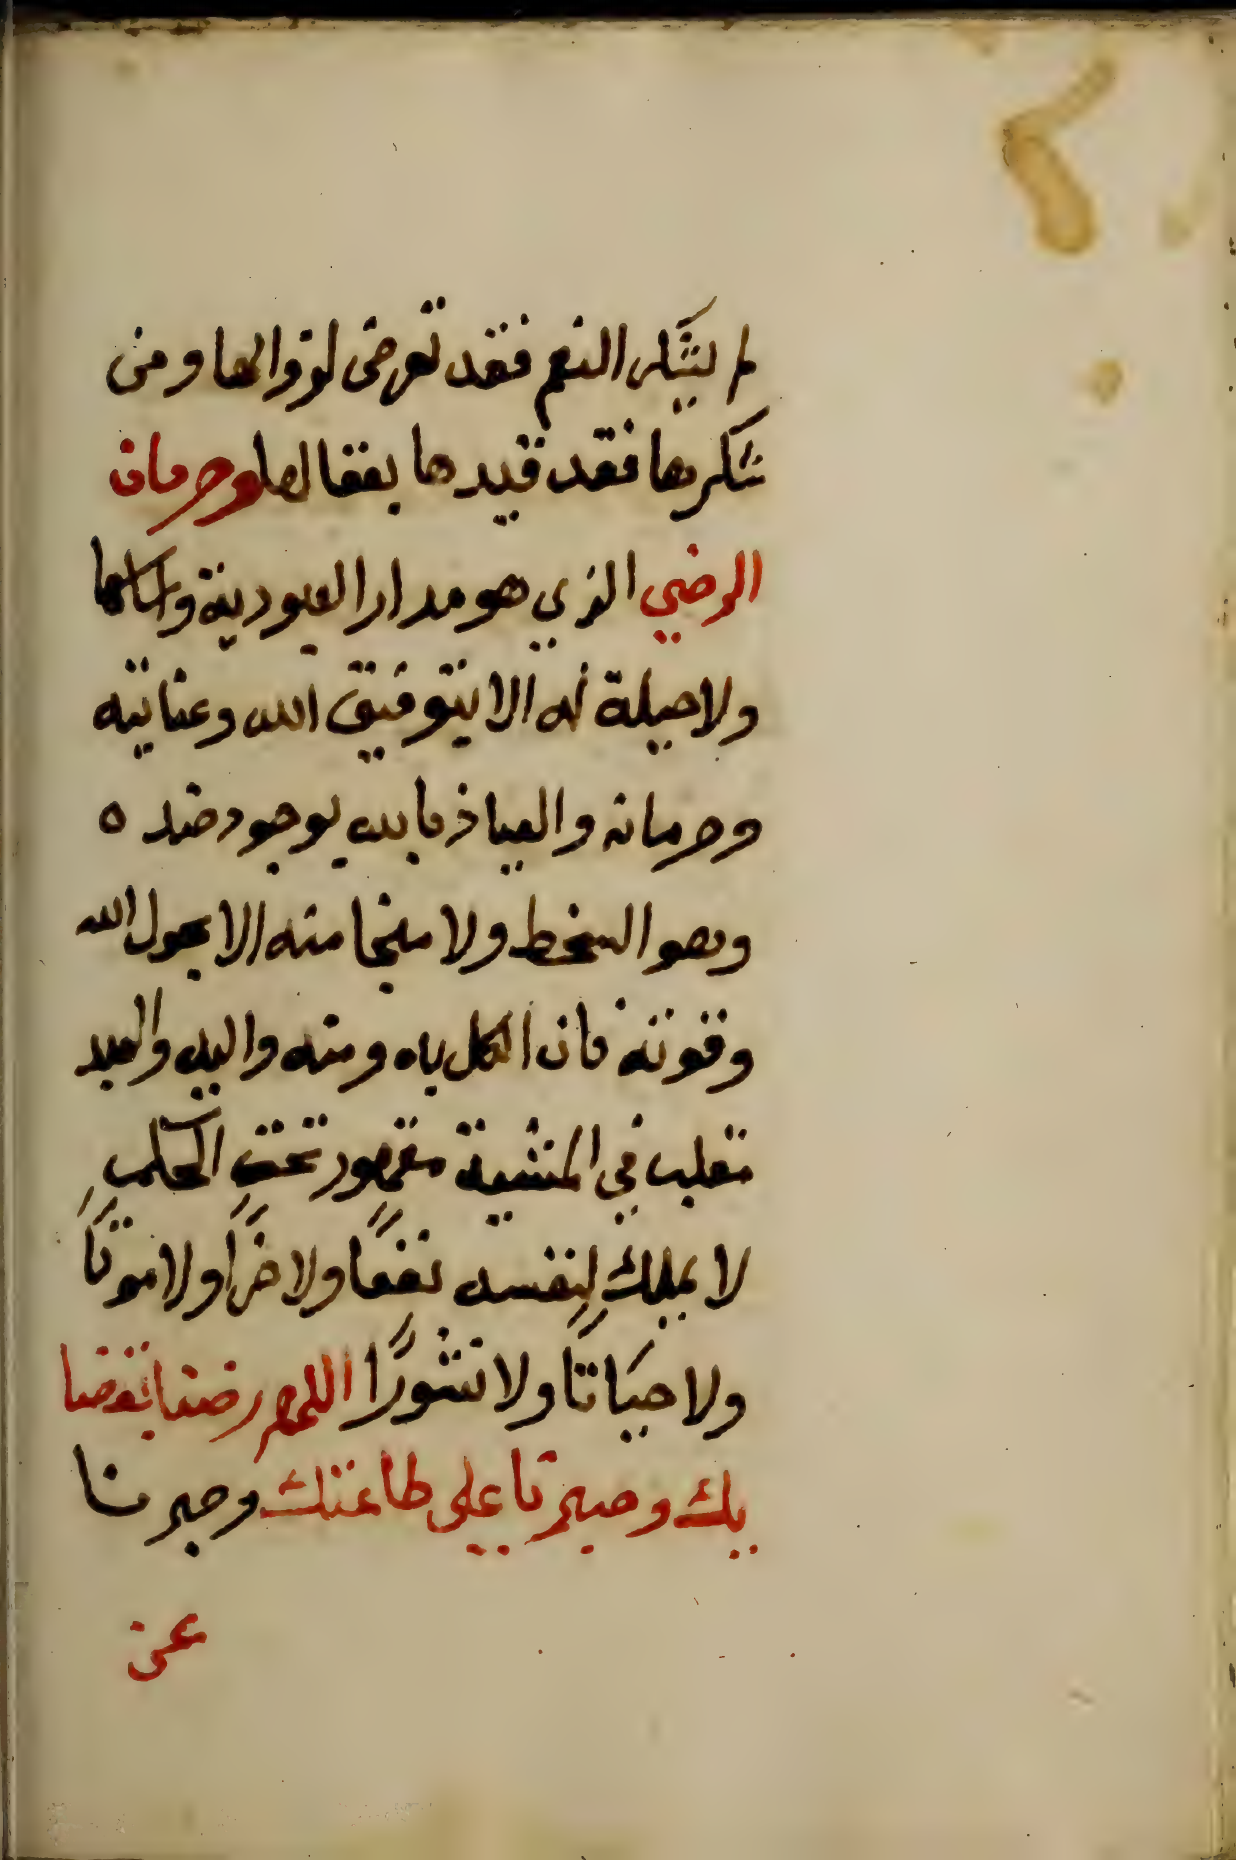 لم يشكر النعم فقد تعرض لزوالها ومن
شكرها فقد قيدها بعقالها وحرمان
الرضي الذي هو مدار العبودية واساسها
ولا حيلة له الا بتوفيق الله وعنايته
وحرمانه والعياذ بالله بوجود ضده
وهو السخط ولا منجا منه الا بحول الله
وقوته فان الكل به ومنه واليه والعبد
متقلب في المشية مقهور تحت الحكم
لا يملك لنفسه نفعًا ولا ضرًا ولا موتًا
ولا حيَاتًا ولا نشورًا اللهم رضنا بقضا
يك وصبرنا على طاعتك وصبرنا
عن